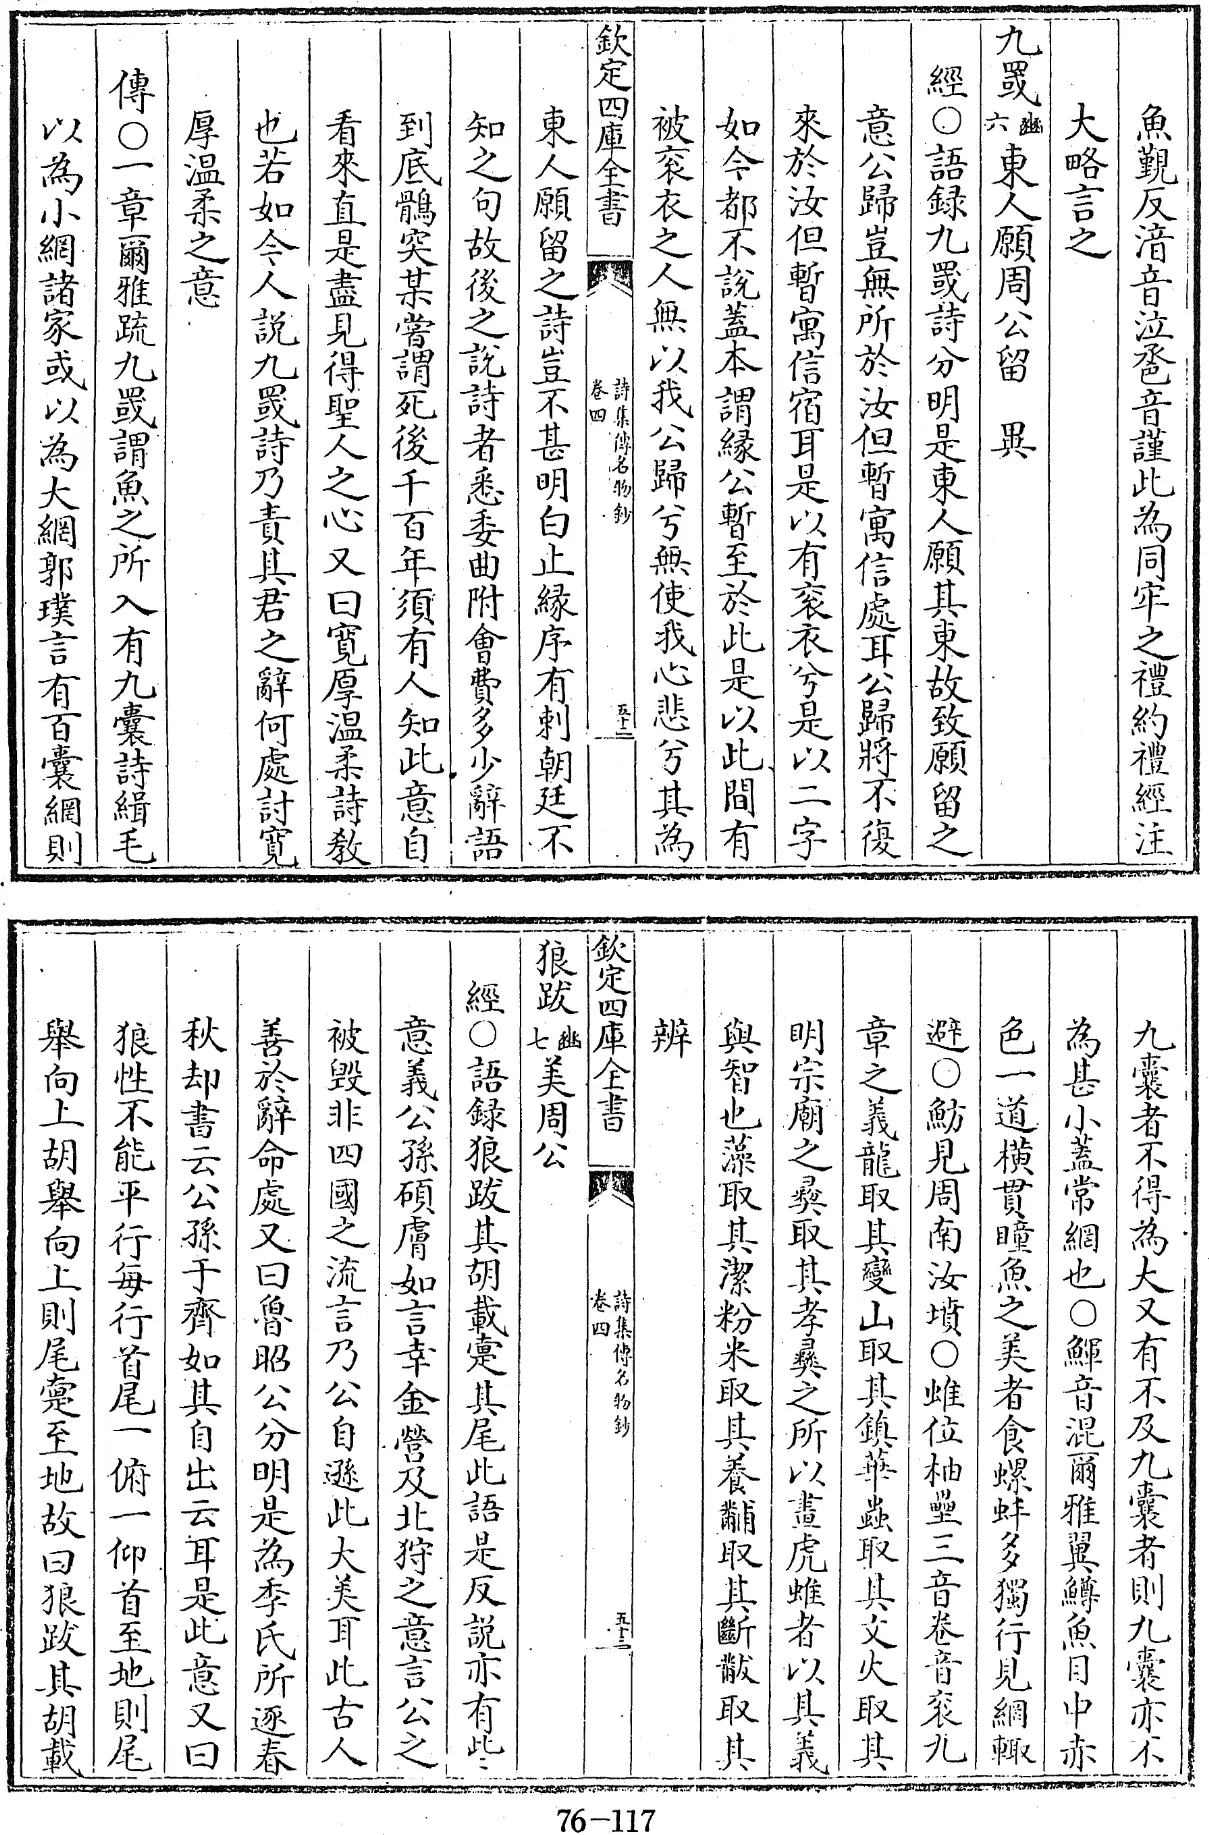 魚觐反湇音泣巹音謹此為同牢之禮約禮經注
大略言之
九罭豳六東人願周公留　異
經○語録九罭詩分明是東人願其東故致願留之
意公歸豈無所於汝但暫寓信處耳公歸將不復
來於汝但暫寓信宿耳是以有衮衣兮是以二字
如今都不說蓋本謂緣公暫至於此是以此間有
被衮衣之人無以我公歸兮無使我心悲兮其為
欽定四庫全書
詩集傳名物鈔
卷四
五十二
東人願留之詩豈不甚明白止緣序有刺朝廷不
知之句故後之說詩者悉委曲附會費多少辭語
到底鶻突某嘗謂死後千百年須有人知此意自
看來直是盡見得聖人之心又曰寛厚温柔詩教
也若如今人說九罭詩乃責其君之辭何處討寛
厚温柔之意
傳○一章爾雅疏九罭謂魚之所入有九囊詩緝毛
以為小網諸家或以為大網郭璞言有百囊網則
九囊者不得為大又有不及九囊者則九囊亦不
為甚小蓋常網也○鯶音混爾雅翼鱒魚目中赤
色一道横貫瞳魚之美者食螺蚌多獨行見網輙
避○魴見周南汝墳○蜼位柚壘三音卷音衮九
章之義龍取其變山取其鎮華蟲取其文火取其
明宗廟之彝取其孝彝之所以畫虎蜼者以其義
與智也藻取其潔粉米取其養黼取其斷黻取其
辨
欽定四庫全書
詩集傳名物鈔
卷四
五十三
狼跋豳七美周公
經○語録狼跋其胡載疐其尾此語是反說亦有此
意義公孫碩膚如言幸金營及北狩之意言公之
被毁非四國之流言乃公自遜此大美耳此古人
善於辭命處又曰魯昭公分明是為季氏所逐春
秋却書云公孫于齊如其自出云耳是此意又曰
狼性不能平行每行首尾一俯一仰首至地則尾
舉向上胡舉向上則尾疐至地故曰狼跋其胡載
76-117